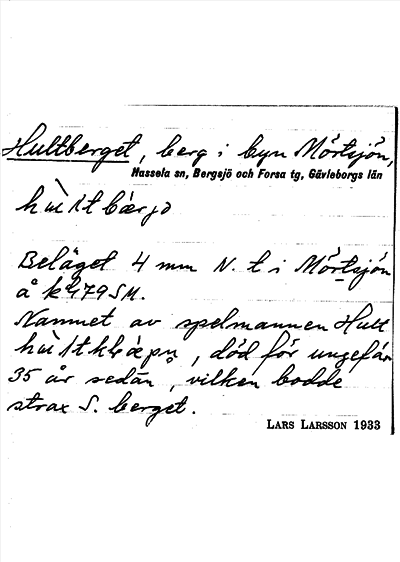 Hultberget, berg i byn Mörtsjön,
Hassela sn, Bergsjö och Forsa tg, Gävleborgs län
Beläget 4 mm N. t i Mörtsjön
å kbl 79 SM.
Namnet av spelmannen Hult
, död för ungefär
35 år sedan, vilken bodde
strax S. berget.
LARS LARSSON 1933